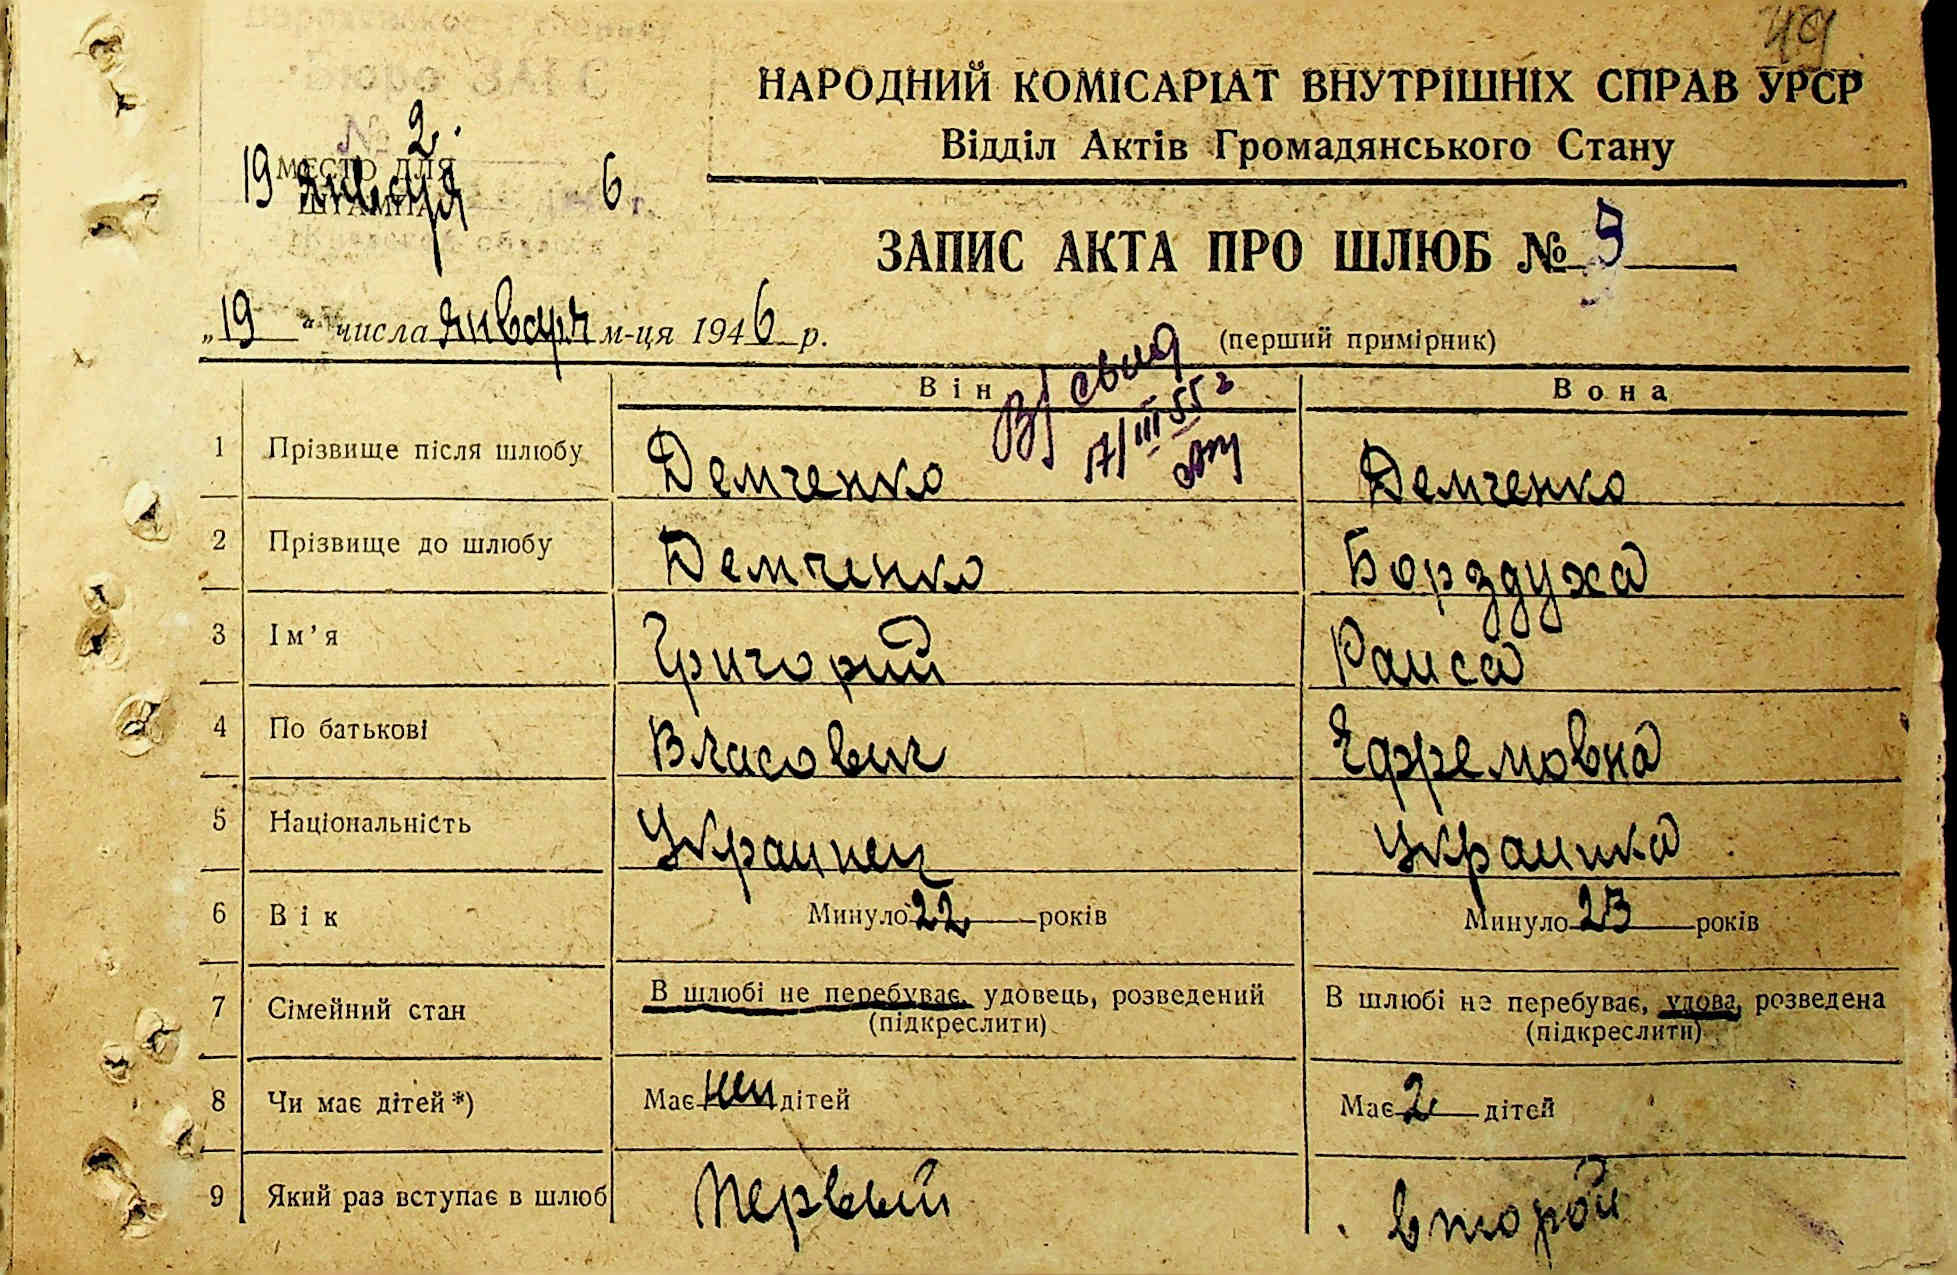 49
Бюро ЗАГС
НАРОДНИЙ КОМІСАРІАТ ВНУТРІШНІХ СПРАВ УРСР
Відділ Актів Громадянського Стану
№ 2
МЕСТО ДЛЯ
ШТАМПА
19 января 6 г.
ЗАПИС АКТА ПРО ШЛЮБ № 9
„19“ числа января м-ця 1946 р.
(перший примірник)
Він Вона
17/III 55 г
1 Прізвище після шлюбу Демченко Демченко
2 Прізвище до шлюбу Демченко Борздуха
3 Ім’я Григорий Раиса
4 По батькові Власович Ефремовна
5 Національність Украинец Украинка
6 Вік Минуло 22 років Минуло 23 років
7 Сімейний стан В шлюбі не перебуває, удовець, розведений В шлюбі не перебуває, удова, розведена
(підкреслити) (підкреслити)
8 Чи має дітей*) Має дітей Має 2 дітей
9 Який раз вступає в шлюб Первый второй